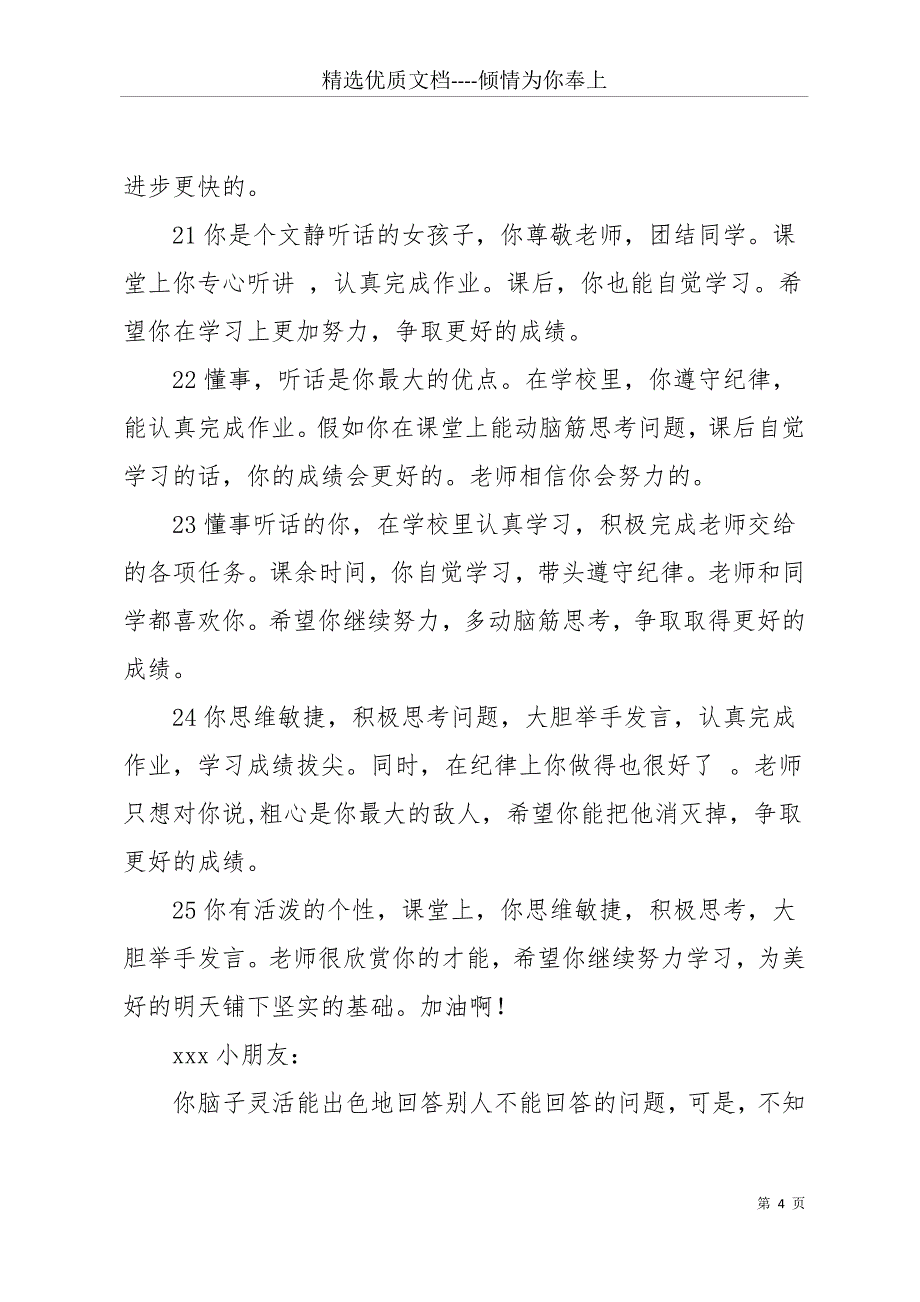 精选优质文档----倾情为你奉上
进步更快的。
21 你是个文静听话的女孩子，你尊敬老师，团结同学。课
堂上你专心听讲 ，认真完成作业。课后，你也能自觉学习。希
望你在学习上更加努力，争取更好的成绩。
22 懂事，听话是你最大的优点。在学校里，你遵守纪律，
能认真完成作业。假如你在课堂上能动脑筋思考问题，课后自觉
学习的话，你的成绩会更好的。老师相信你会努力的。
23 懂事听话的你，在学校里认真学习，积极完成老师交给
的各项任务。课余时间，你自觉学习，带头遵守纪律。老师和同
学都喜欢你。希望你继续努力，多动脑筋思考，争取取得更好的
成绩。
24 你思维敏捷，积极思考问题，大胆举手发言，认真完成
作业，学习成绩拔尖。同时，在纪律上你做得也很好了 。老师
只想对你说,粗心是你最大的敌人，希望你能把他消灭掉，争取
更好的成绩。
25 你有活泼的个性，课堂上，你思维敏捷，积极思考，大
胆举手发言。老师很欣赏你的才能，希望你继续努力学习，为美
好的明天铺下坚实的基础。加油啊！
xxx 小朋友：
你脑子灵活能出色地回答别人不能回答的问题，可是，不知
第 4 页